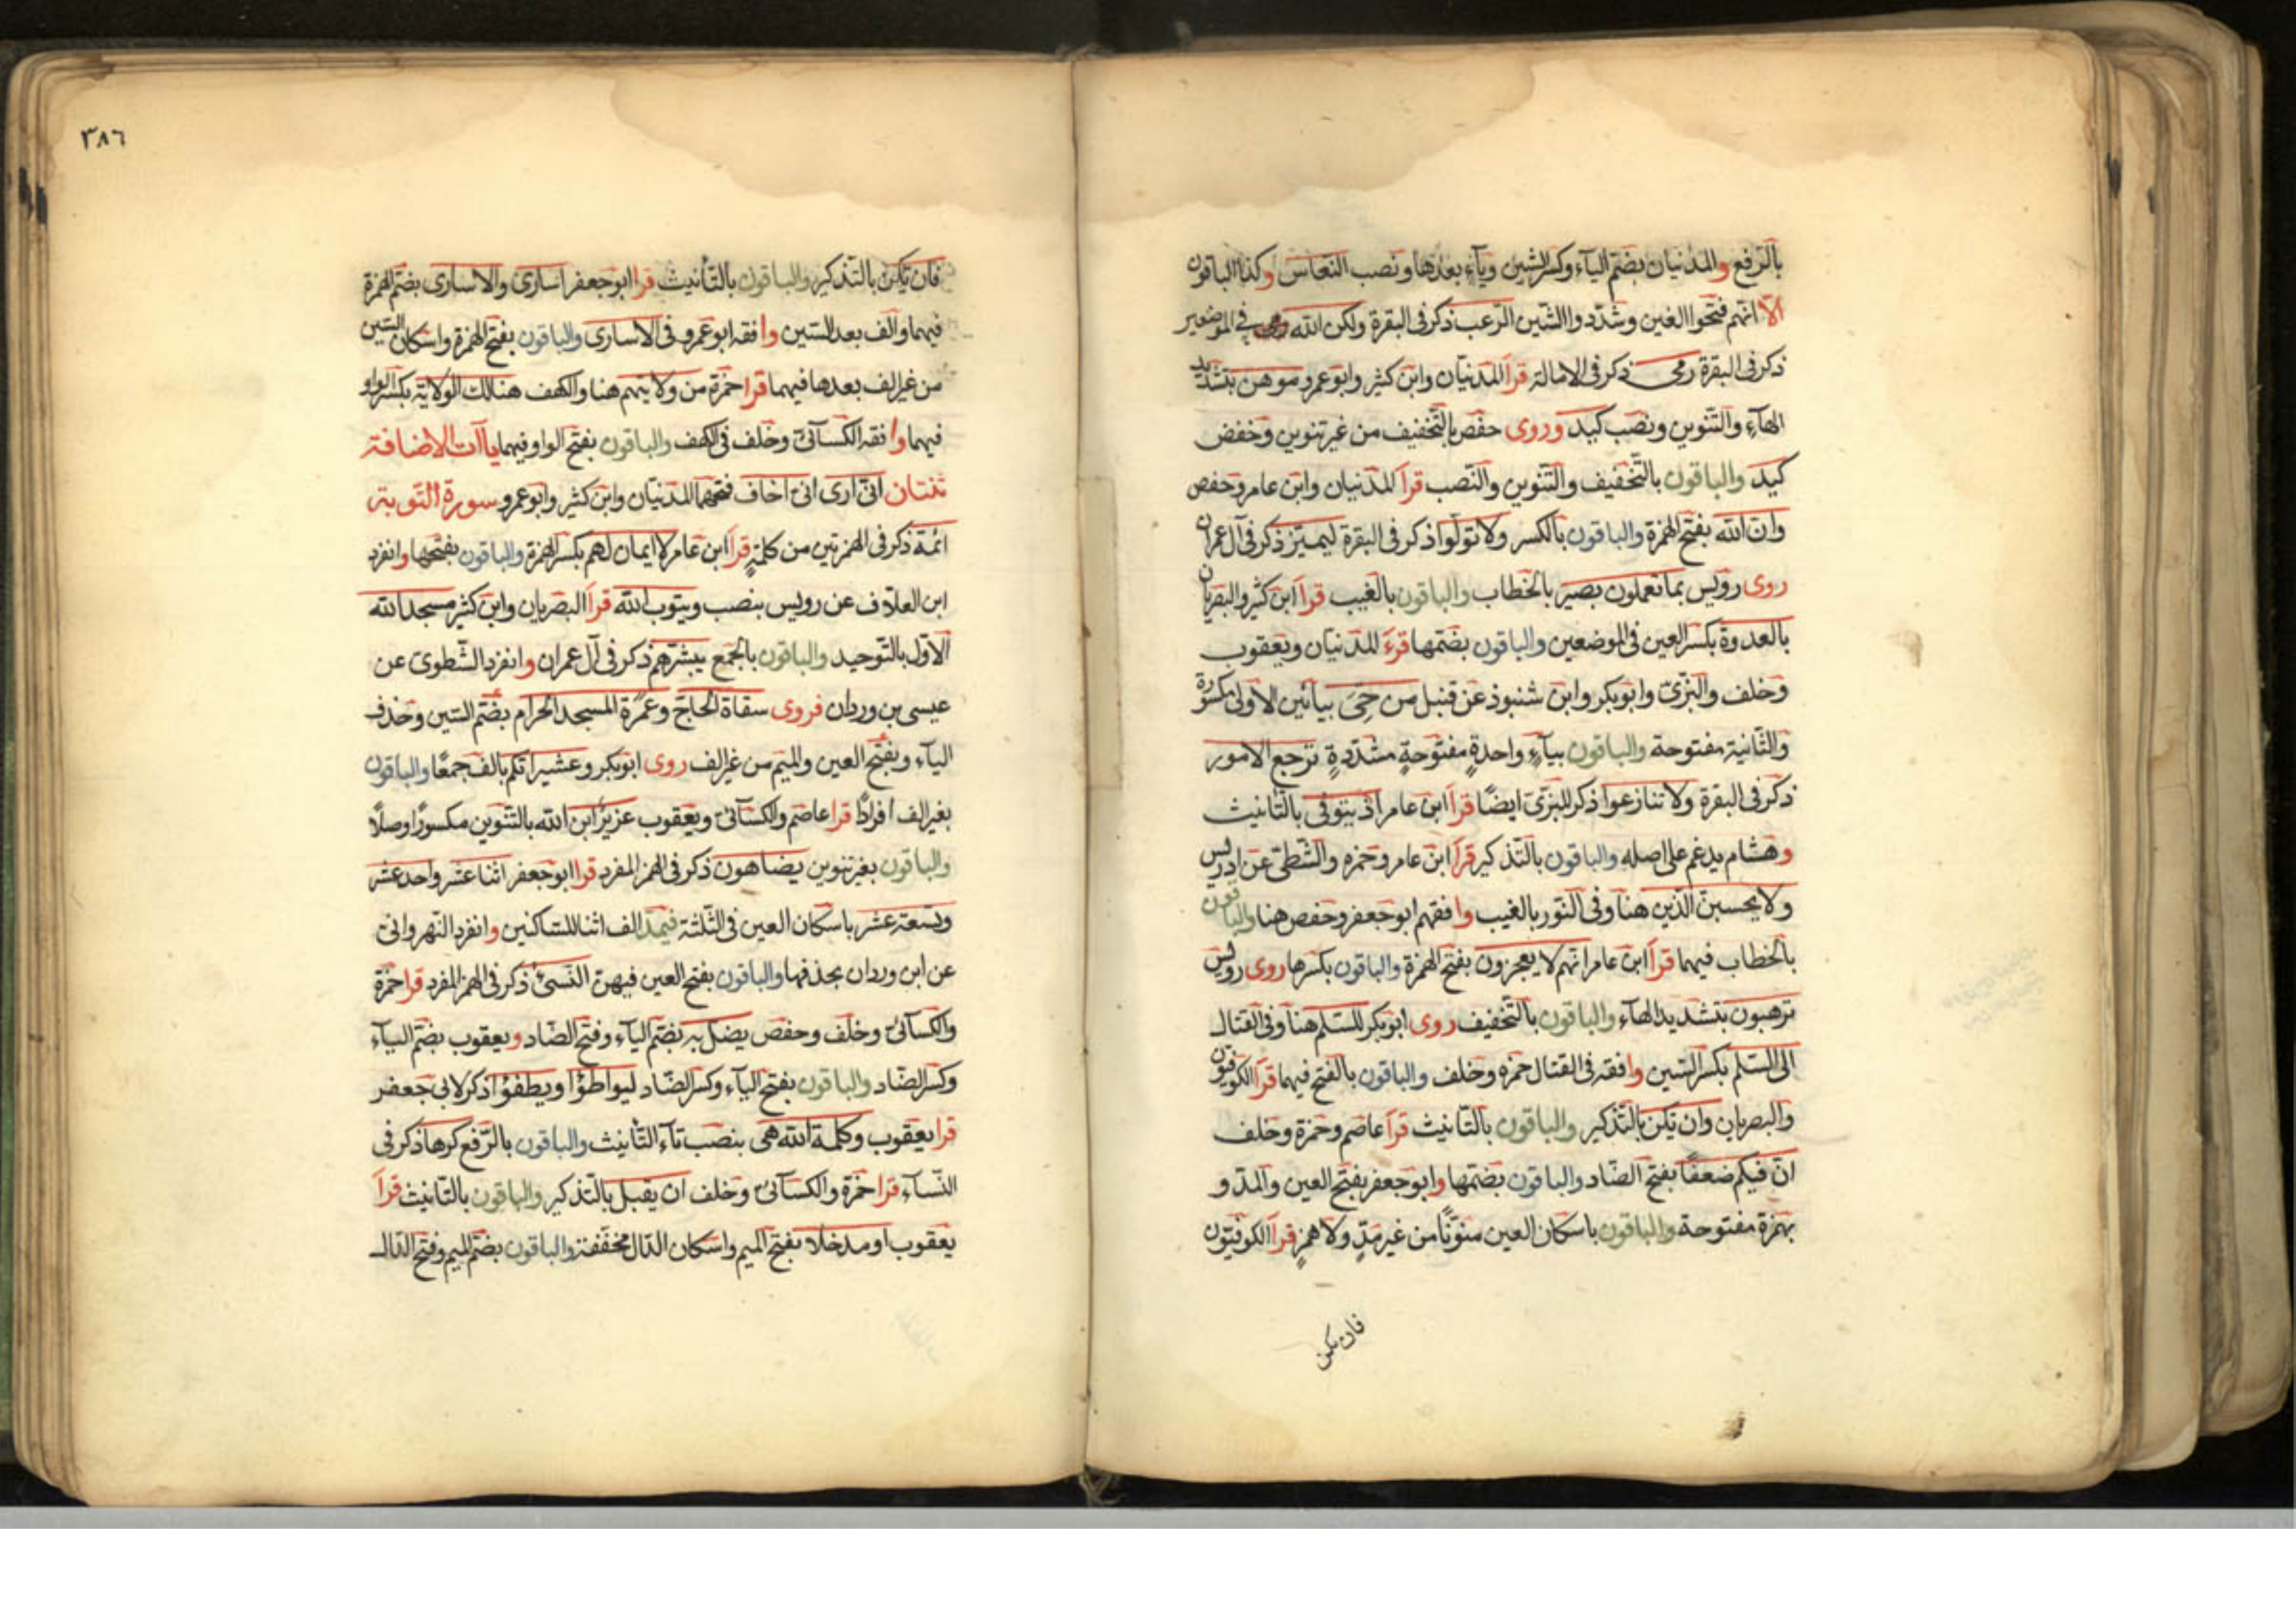 بالرفع والمدنيان بضم الياء وكسر الشين وياء بعدها ونصب النعاس وكذا الباقون
الا انهم فتحوا الغين وشددوا الشين الرعب ذكر فى البقرة ولكن الله في الموضعين
ذكر فى البقرة رمى ذكر فى الامالة قرأ المدنيان وابن كثير وابو عمرو موهن بتشديد
الهاء والتنوين ونصب كيد وروى حفص بالتخفيف من غير تنوين وخفض
كيد والباقون بالتخفيف والتنوين والنصب قرأ المدنيان وابن عامر وحفص
وان الله بفتح الهمزة والباقون بالكسر ولا تولوا ذكر فى البقرة ليميز ذكر فى آل عمران
روى رويس بما تعملون بصير بالخطاب والباقون بالغيب قرأ ابن كثير والبصريان
بالعدوة بكسر العين فى الموضعين والباقون بضمها قرء المدنيان ويعقوب
وخلف والبزى وابو بكر وابن شنبوذ عن قنبل من حيى بيائين الاولى مكسورة
والثانية مفتوحة والباقون بياء واحدة مفتوحة مشددة ترجع الامور
ذكر فى البقرة ولا تنازعوا ذكر للبزى ايضا قرأ ابن عامر اذ يتوفى بالتانيث
وهشام يدغم على اصله والباقون بالتذكير قرأ ابن عامر وحمزه والشطى عن ادريس
ولا يحسبن الذين هنا وفى النور بالغيب وافقهم ابو جعفر وحفص هنا والباقون
بالخطاب فيهما قرأ ابن عامر انهم لا يعجزون بفتح الهمزة والباقون بكسرها روى رويس
ترهبون بتشديد الهاء والباقون بالتخفيف روى ابو بكر للسلم هنا وفى القتال
الى السلم بكسر السين وافقه فى القتال حمزه وخلف والباقون بالفتح فيهما قرأ الكوفيون
والبصريان وان يكن بالتذكير والباقون بالتانيث قرأ عاصم وحمزة وخلف
ان فيكم ضعفا بفتح الضاد والباقون بضمها وابو جعفر بفتح العين والمد و
بهمزة مفتوحة والباقون باسكان العين منونا من غير مد ولا همز قرأ الكوفيون
فان يكن
٣٨٦
فان يكن بالتذكير والباقون بالتأنيث قرا ابو جعفر اسارى والاسارى بضم الهمزة
فيهما والف بعد السين وافقه ابو عمرو فى الاسارى والباقون بفتح الهمزة واسكان السين
من غير الف بعدها فيهما قرا حمزة من ولايتهم هنا والكهف هنالك الولاية بكسر الواو
فيهما وافقه الكسائى وخلف فى الكهف والباقون بفتح الواو فيهما ياآت الاضافة
ثنتان انى ارى انى اخاف فتحهما المدنيان وابن كثير وابو عمرو سورة التوبة
ائمة ذكر فى الهمزتين من كلمة قرأ ابن عامر لا ايمان لهم بكسر الهمزة والباقون بفتحها وانفرد
ابن العلاف عن رويس بنصب ويتوب الله قرأ البصريان وابن كثير مسجد الله
الاول بالتوحيد والباقون بالجمع يبشرهم ذكر فى آل عمران وانفرد الشطوى عن
عيسى بن وردان فروى سقاة الحاج وعمرة المسجد الحرام بضم السين وحذف
الياء وبفتح العين والميم من غير الف روى ابو بكر وعشيراتكم بالف جمعا والباقون
بغير الف افرادا قرا عاصم والكسائى ويعقوب عزير ابن الله بالتنوين مكسورا وصلا
والباقون بغير تنوين يضاهون ذكر فى الهمز المفرد قرا ابو جعفر اثنا عشر واحد عشر
وتسعة عشر باسكان العين فى الثلثة فيمد الف اثنا للساكنين وانفرد النهروانى
عن ابن وردان بحذفها والباقون بفتح العين فيهن النسئ ذكر فى الهمز المفرد قرا حمزة
والكسائى وخلف وحفص يضل به بضم الياء وفتح الضاد ويعقوب بضم الياء
وكسر الضاد والباقون بفتح الياء وكسر الضاد ليواطؤا ويطفؤا ذكر لابى جعفر
قرا يعقوب وكلمة الله هى بنصب تاء التأنيث والباقون بالرفع كرها ذكر فى
النساء قرا حمزة والكسائى وخلف ان يقبل بالتذكير والباقون بالتانيث قرأ
يعقوب او مدخلا بفتح الميم واسكان الدال مخففة والباقون بضم الميم وفتح الدال